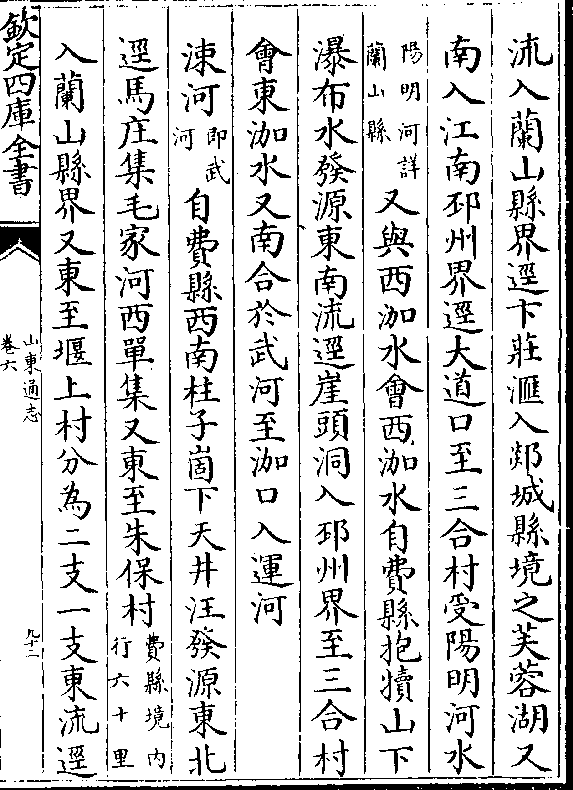 流入蘭山縣界逕卞莊滙入郯城縣境之芙蓉湖又
南入江南邳州界逕大道口至三合村受陽明河水
陽明河詳
蘭山縣
又與西泇水會西泇水自費縣抱犢山下
瀑布水發源東南流逕崖頭洞入邳州界至三合村
會東泇水又南合於武河至泇口入運河
涑河
即武
河
自費縣西南柱子崮下天井汪發源東北
逕馬庄集毛家河西單集又東至朱保村
費縣境內
行六十里
入蘭山縣界又東至堰上村分為二支一支東流逕
欽定四庫全書
山東通志
卷六
九十二